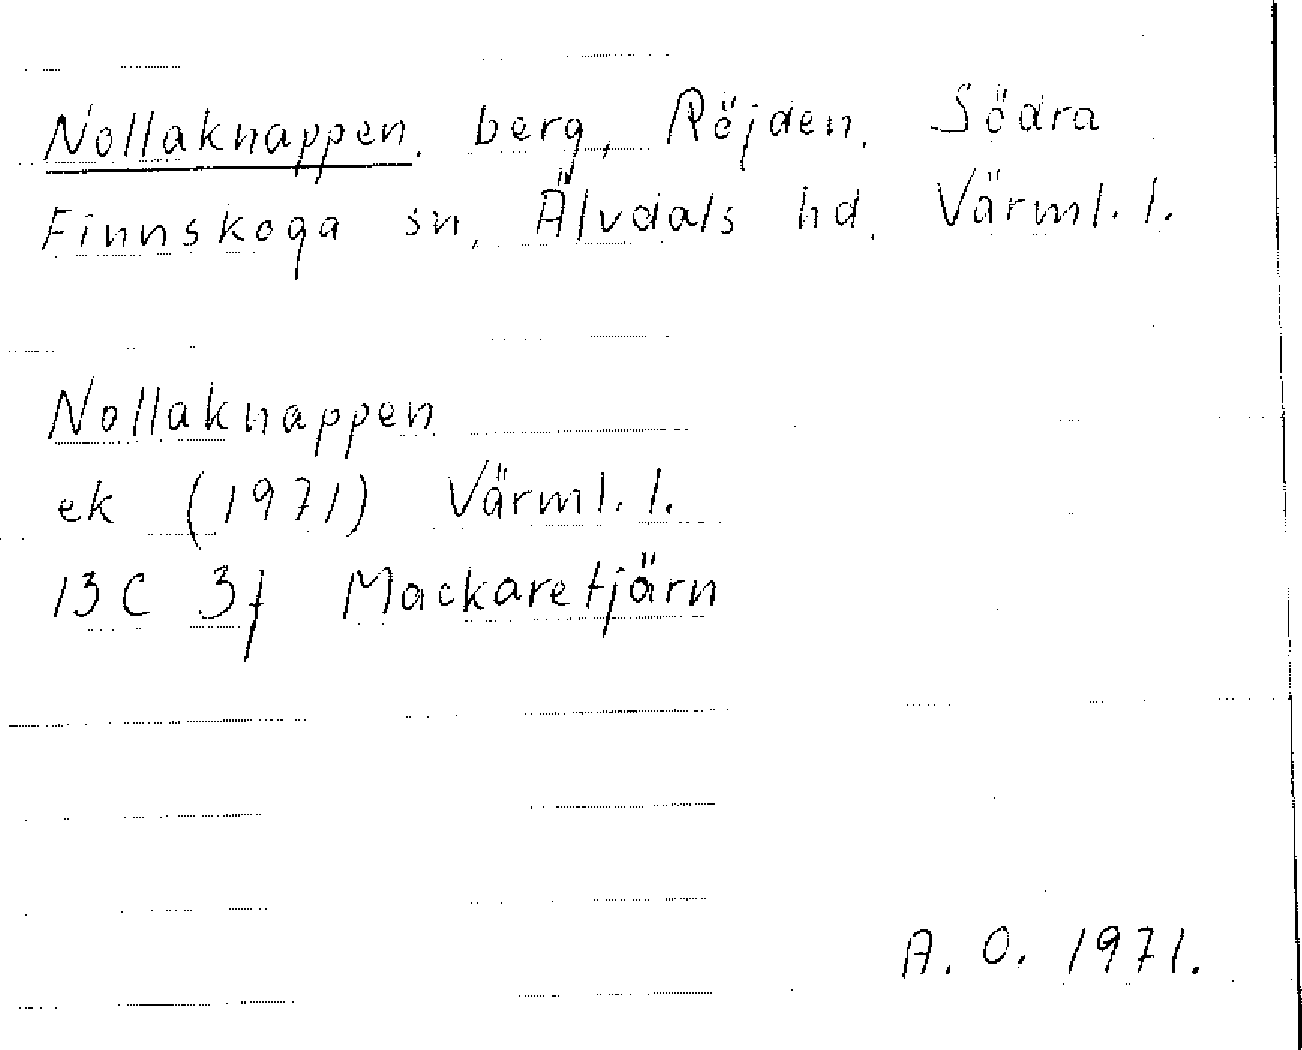 Nollaknappen, berg, Röjden, Södra
Finnskoga sn, Älvdals hd, Värml. l.
Nollaknappen
ek (1971) Värml. l.
13C 3f Mackaretjärn
A. O. 1971.